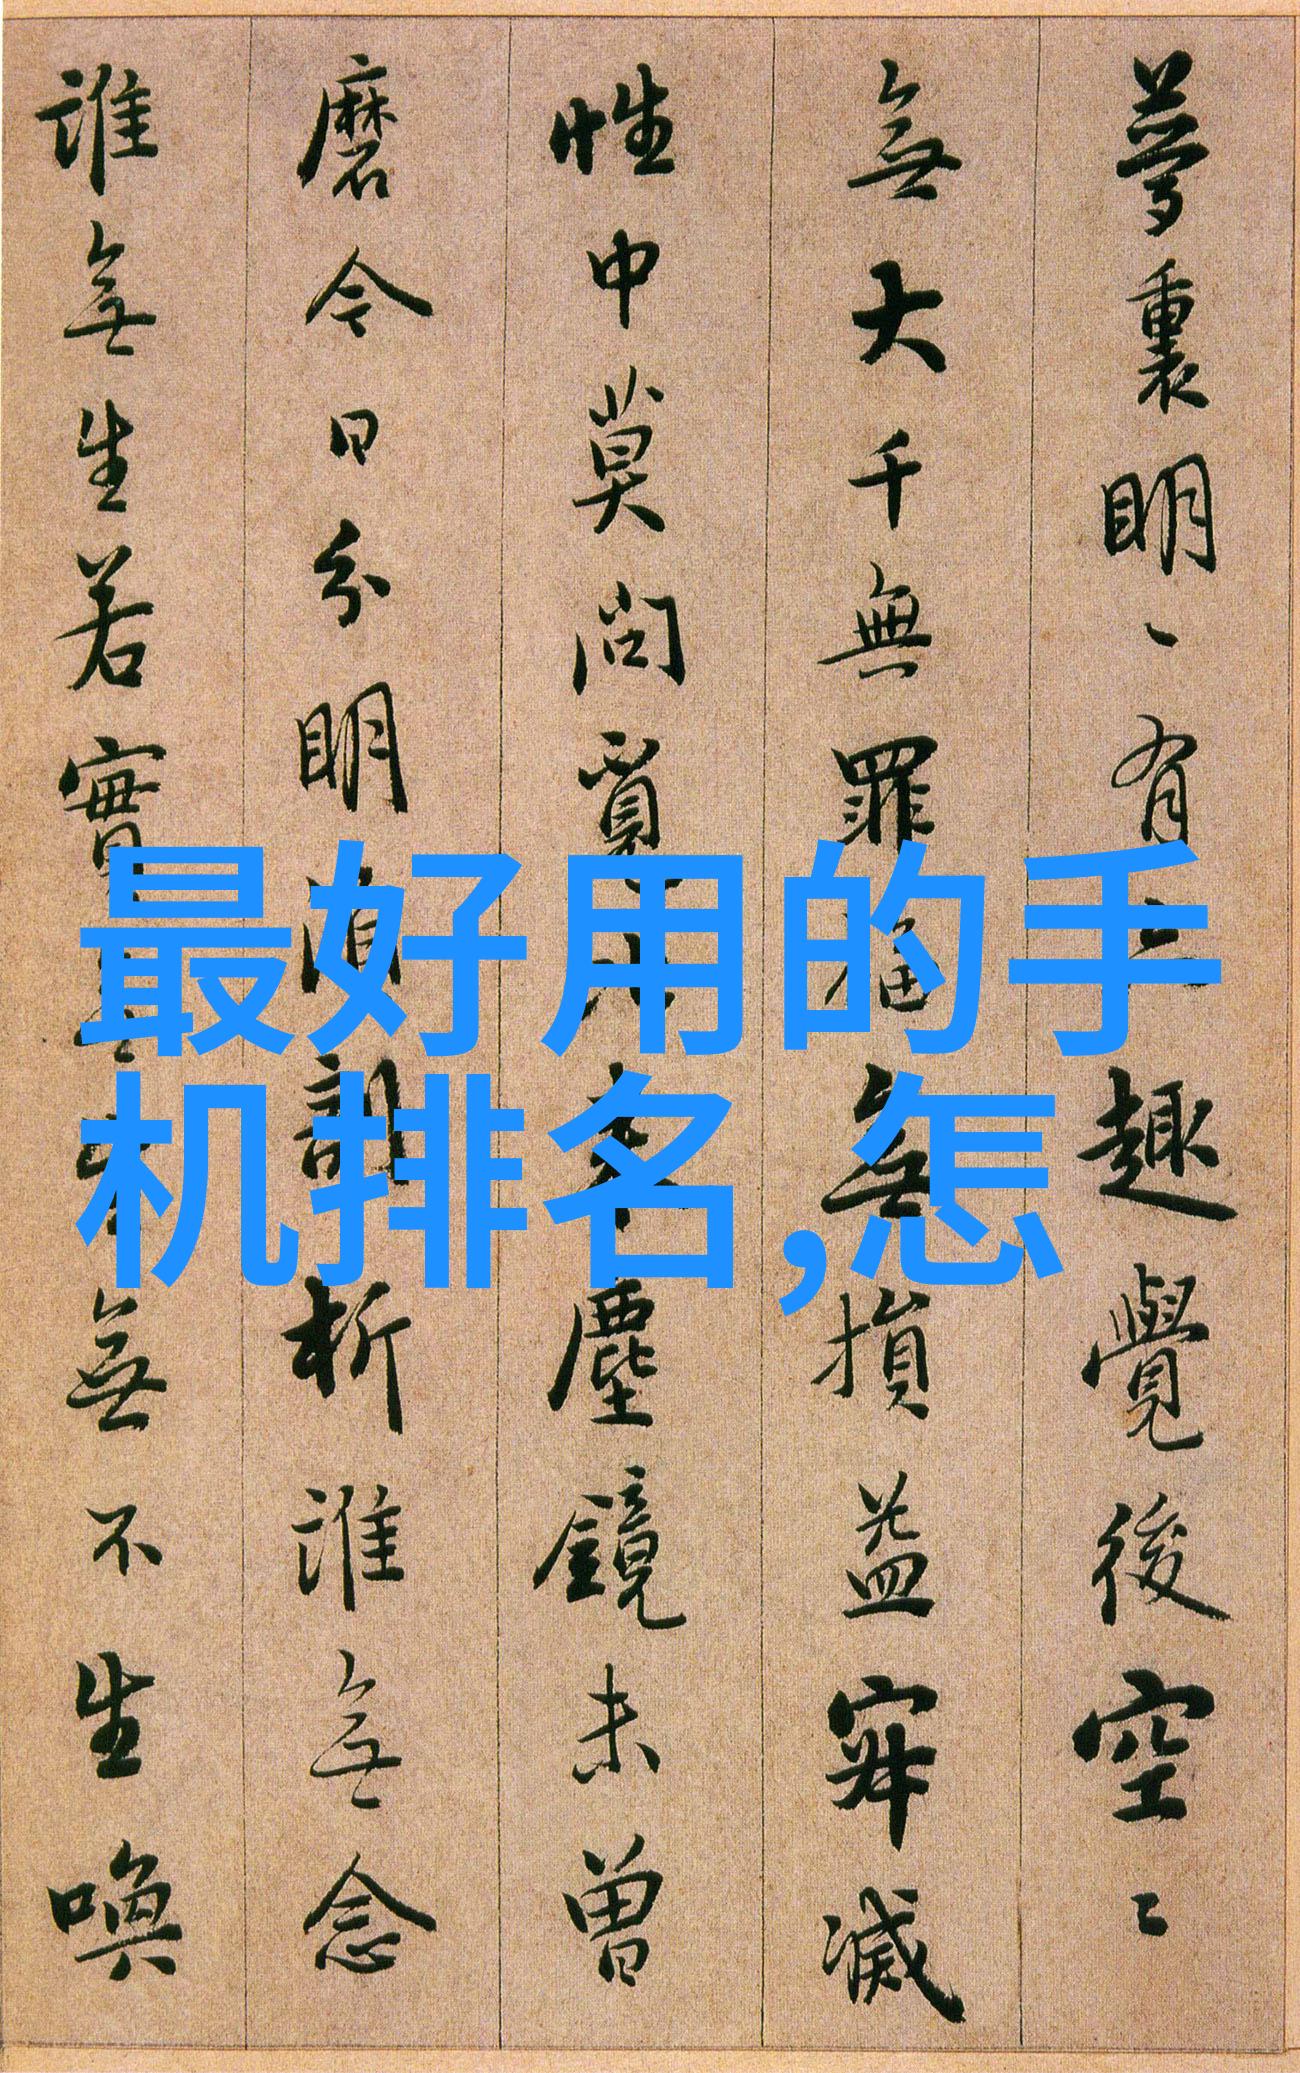 夢裏明、有六趣覺後空〻
無大千無罪福無損益寂滅
性中莫問覓比来塵鏡未曾
磨今日分明須剖析誰無念
誰無生若實無生無不生喚
最好用的手
机排名,怎